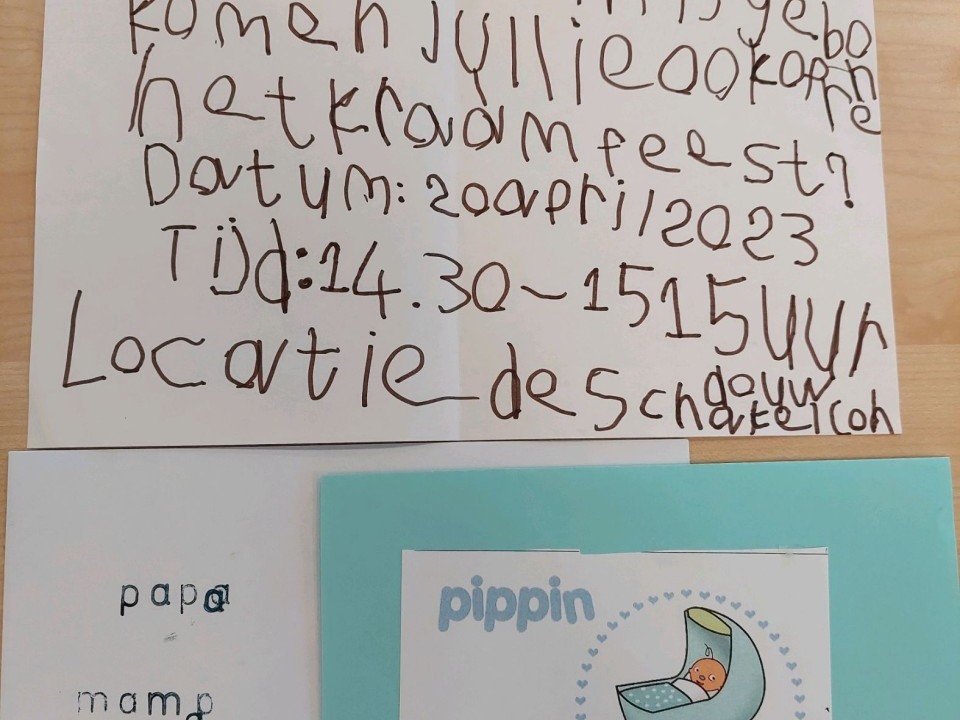 is gebo
komen jullie ook op
ren
het kraamfeest?
Datum: 20 april 2023
Tijd: 14.30 ~ 15 15 uur
Locatie de Sch
papa
mama
pippin